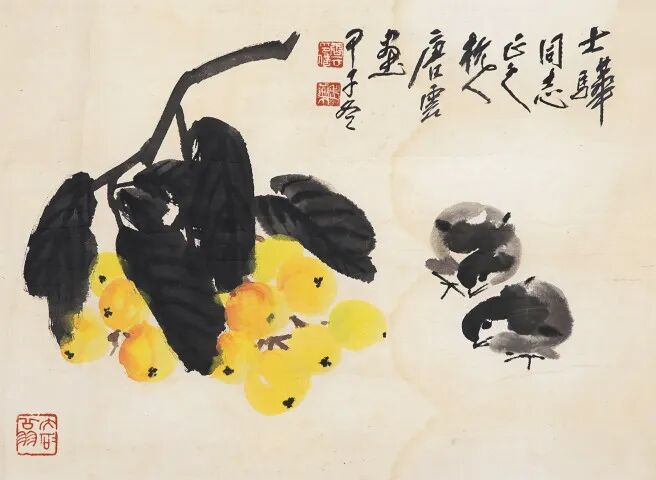 士驊
同志
正之
杭人
唐雲
畫
甲子冬